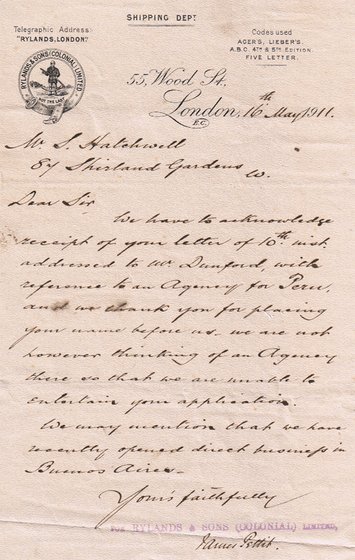 SHIPPING DEPT
Telegraphic Address:
"RYLANDS, LONDON."
Codes used
AGER'S, LIEBER'S.
A.B.C. 4TH & 5TH EDITION.
FIVE LETTER.
RYLANDS & SONS (COLONIAL) LIMITED
NOT THE LAST
55, Wood St.,
London, 16th May, 1911.
E.C.
Mr S. Hatchwell
84 Shirland Gardens
W.
Dear Sir
We have to acknowledge
receipt of your letter of 10th inst.
addressed to Mr Dunford, with
reference to an Agency for Peru,
and we thank you for placing
your name before us - we are not
however thinking of an Agency
there so that we are unable to
entertain your application.
We may mention that we have
recently opened direct business in
Buenos Aires -
Yours faithfully
FOR RYLANDS & SONS (COLONIAL) LIMITED,
James Pettit